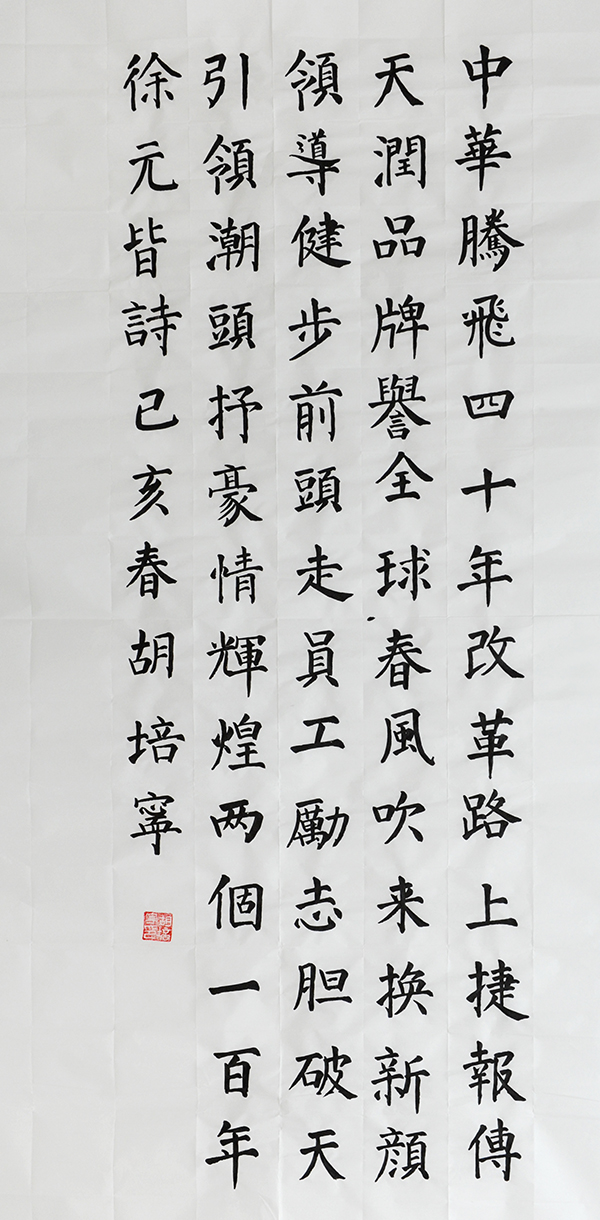 中華騰飛四十年改革路上捷報傳
天潤品牌譽全球春風吹来换新顔
領導健步前頭走員工勵志胆破天
引領潮頭抒豪情輝煌两個一百年
徐元皆詩己亥春胡培寧